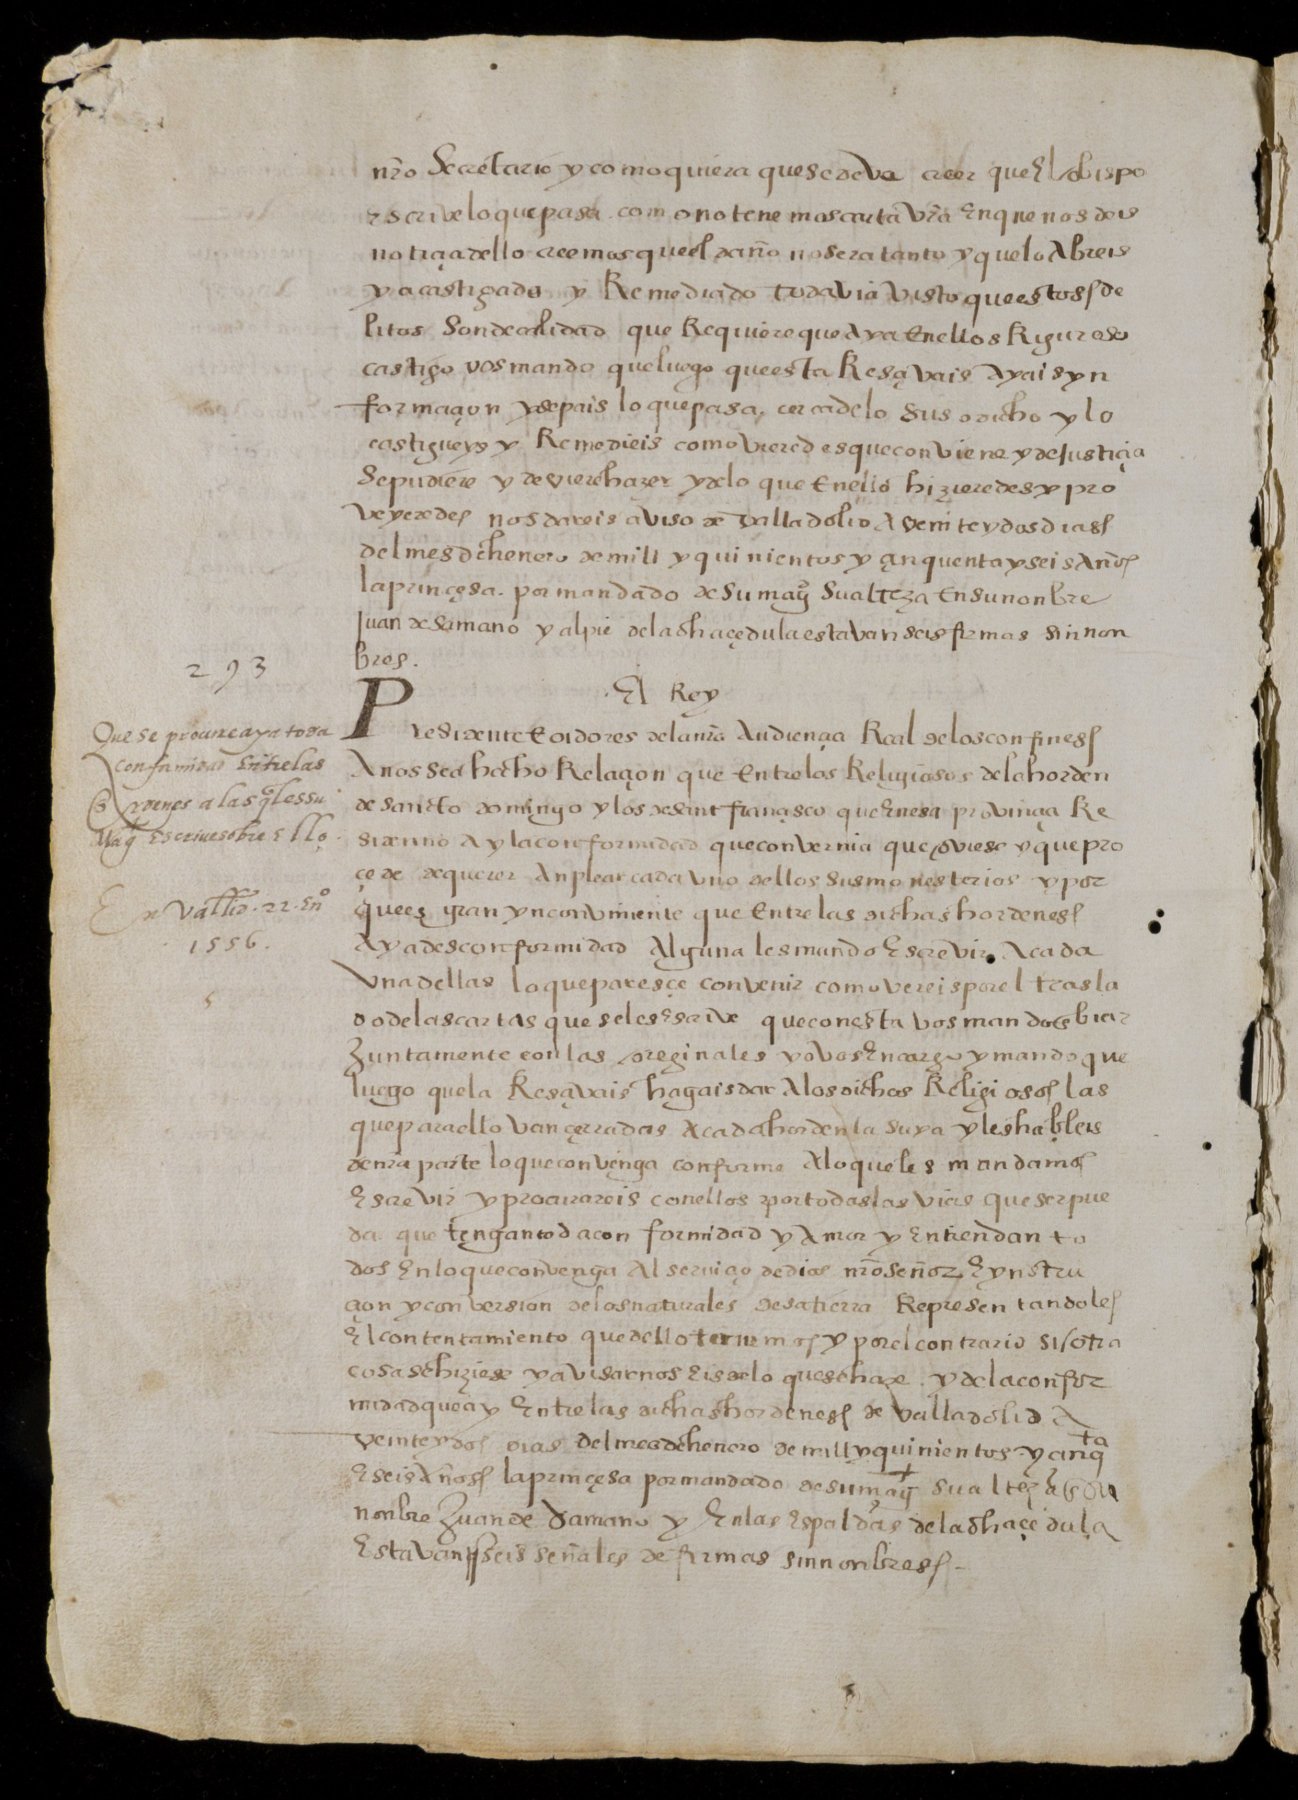 nr̃o Secretario y como quiera que se deva creer que El obispo
escrive lo que pasa como no tenemos carta vr̃a En que nos deis
notiçia dello creemos que el daño no sera tanto y que lo Abreis
ya castigado y Remediado todavia visto que estos de
litos Son de calidad que Requiere que Aya En ellos Riguroso
castigo vos mando que luego que esta Resçivais Ayais yn
formaçion y sepais lo que pasa cerca de lo Suso dicho y lo
castigueys y Remedieis como vieredes que conviene y de Justiçia
Se pudiere y deviere hazer y de lo que En ello hizieredes y pro
veyeredes nos dareis aviso de Valladolid A veinte y dos dias
del mes dehenero de mill y quinientos y çinquenta y seis Años
la prinçesa. por mandado de Su mag̃ Su alteza En su nonbre
Juan de Samano y al pie de la dha çedula estavan seis firmas sin non
bres.
293
El Rey
Presidente E oidores de la nr̃a Audiençia Real de los confines
A nos se a hecho Relaçion que Entre los Religiosos de la horden
de sancto domingo y los de sant françisco que En esa provinçia Re
siden no Ay la conformidad que convernia que oviese y que pro
çede de querer Anplear cada uno dellos sus monesterios y por
que es gran ynconviniente que Entre las dichas hordenes
Aya desconformidad Alguna les mando Escrevir A cada
Una dellas lo que paresçe convenir como vereis por el trasla
do de las cartas que se les Escrive que con esta vos mando Enbiar
Juntamente con las oreginales yo vos Encargo y mando que
luego que la Resçivais hagais dar A los dichos Religiosos las
que para ello van çerradas A cada horden la suya y les hableis
de nr̃a parte lo que convenga conforme A lo que les mandamos
Escrevir y procurareis con ellos por todas las vias que ser pue
da que tengan toda conformidad y Amor y Entiendan to
dos En lo que convenga Al serviçio de dios nr̃o Señor E ynstru
çion y conversion de los naturales desa tierra Representandoles
El contentamiento que dello ternemos y por el contrario si otra
cosa se hiziese y avisarnos eis de lo que se haze y de la confor
midad que ay Entre las dichas hordenes de Valladolid A
veinte y dos dias del mes dehenero de mill y quinientos y çinqta
E seis Años la prinçesa por mandado de su mag̃ su alteza En su
nonbre Juan de Samano y En las Espaldas de la dha çedula
Estavan seis señales de firmas sin nonbres.
Que se procure aya toda
conformidad Entre las
Ordenes a las qles su
Mag̃ Escrive sobre Ello.
de Vallid. 22. Enº
1556.